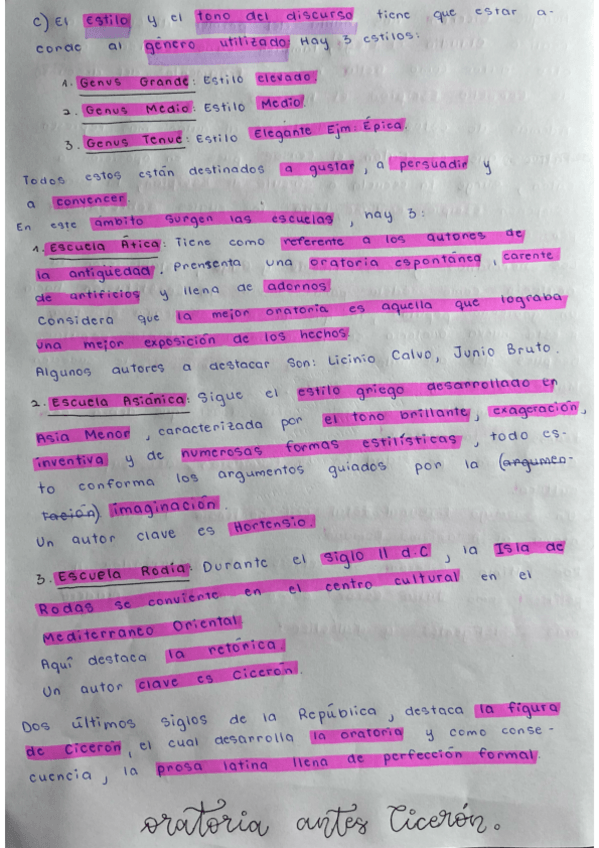 c) El estilo y el tono del discurso tiene que estar a-
corde al género utilizado. Hay 3 estilos:
1. Genus Grande: Estilo elevado.
2. Genus Medio: Estilo Medio.
3. Genus Tenue: Estilo Elegante Ejm: Épica.
Todos estos están destinados a gustar, a persuadir y
a convencer.
En este ámbito surgen las escuelas, hay 3:
1. Escuela Ática: Tiene como referente a los autores de
la antigüedad. Prensenta una oratoria espontánea, carente
de artificios y llena de adornos.
Considera que la mejor oratoria es aquella que lograba
una mejor exposición de los hechos.
Algunos autores a destacar son: Licinio Calvo, Junio Bruto.
2. Escuela Asiánica: Sigue el estilo griego desarrollado en
Asia Menor, caracterizada por el tono brillante, exageración,
inventiva y de numerosas formas estilísticas, todo es-
to conforma los argumentos guiados por la (argumen-
tación) imaginación.
Un autor clave es Hortensio.
3. Escuela Rodia: Durante el siglo II d.C, la Isla de
Rodas se conviente en el centro cultural en el
Mediterraneo Oriental.
Aquí destaca la retórica.
Un autor clave es Cicerón.
Dos últimos siglos de la República, destaca la figura
de Cicerón, el cual desarrolla la oratoria y como conse-
cuencia, la prosa latina llena de perfección formal.
oratoria antes Cicerón.